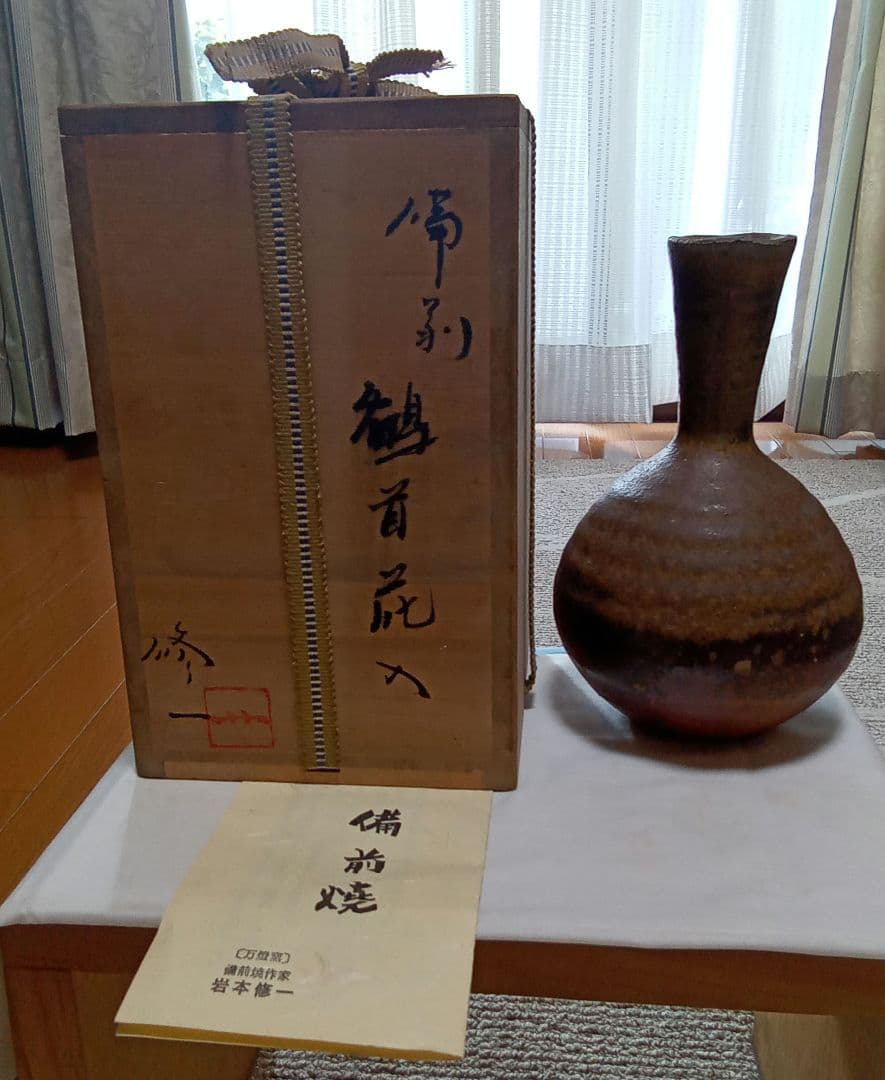 備前
鶴首花入
修一
備前燒
〔万燈窯〕
備前焼作家
岩本修一